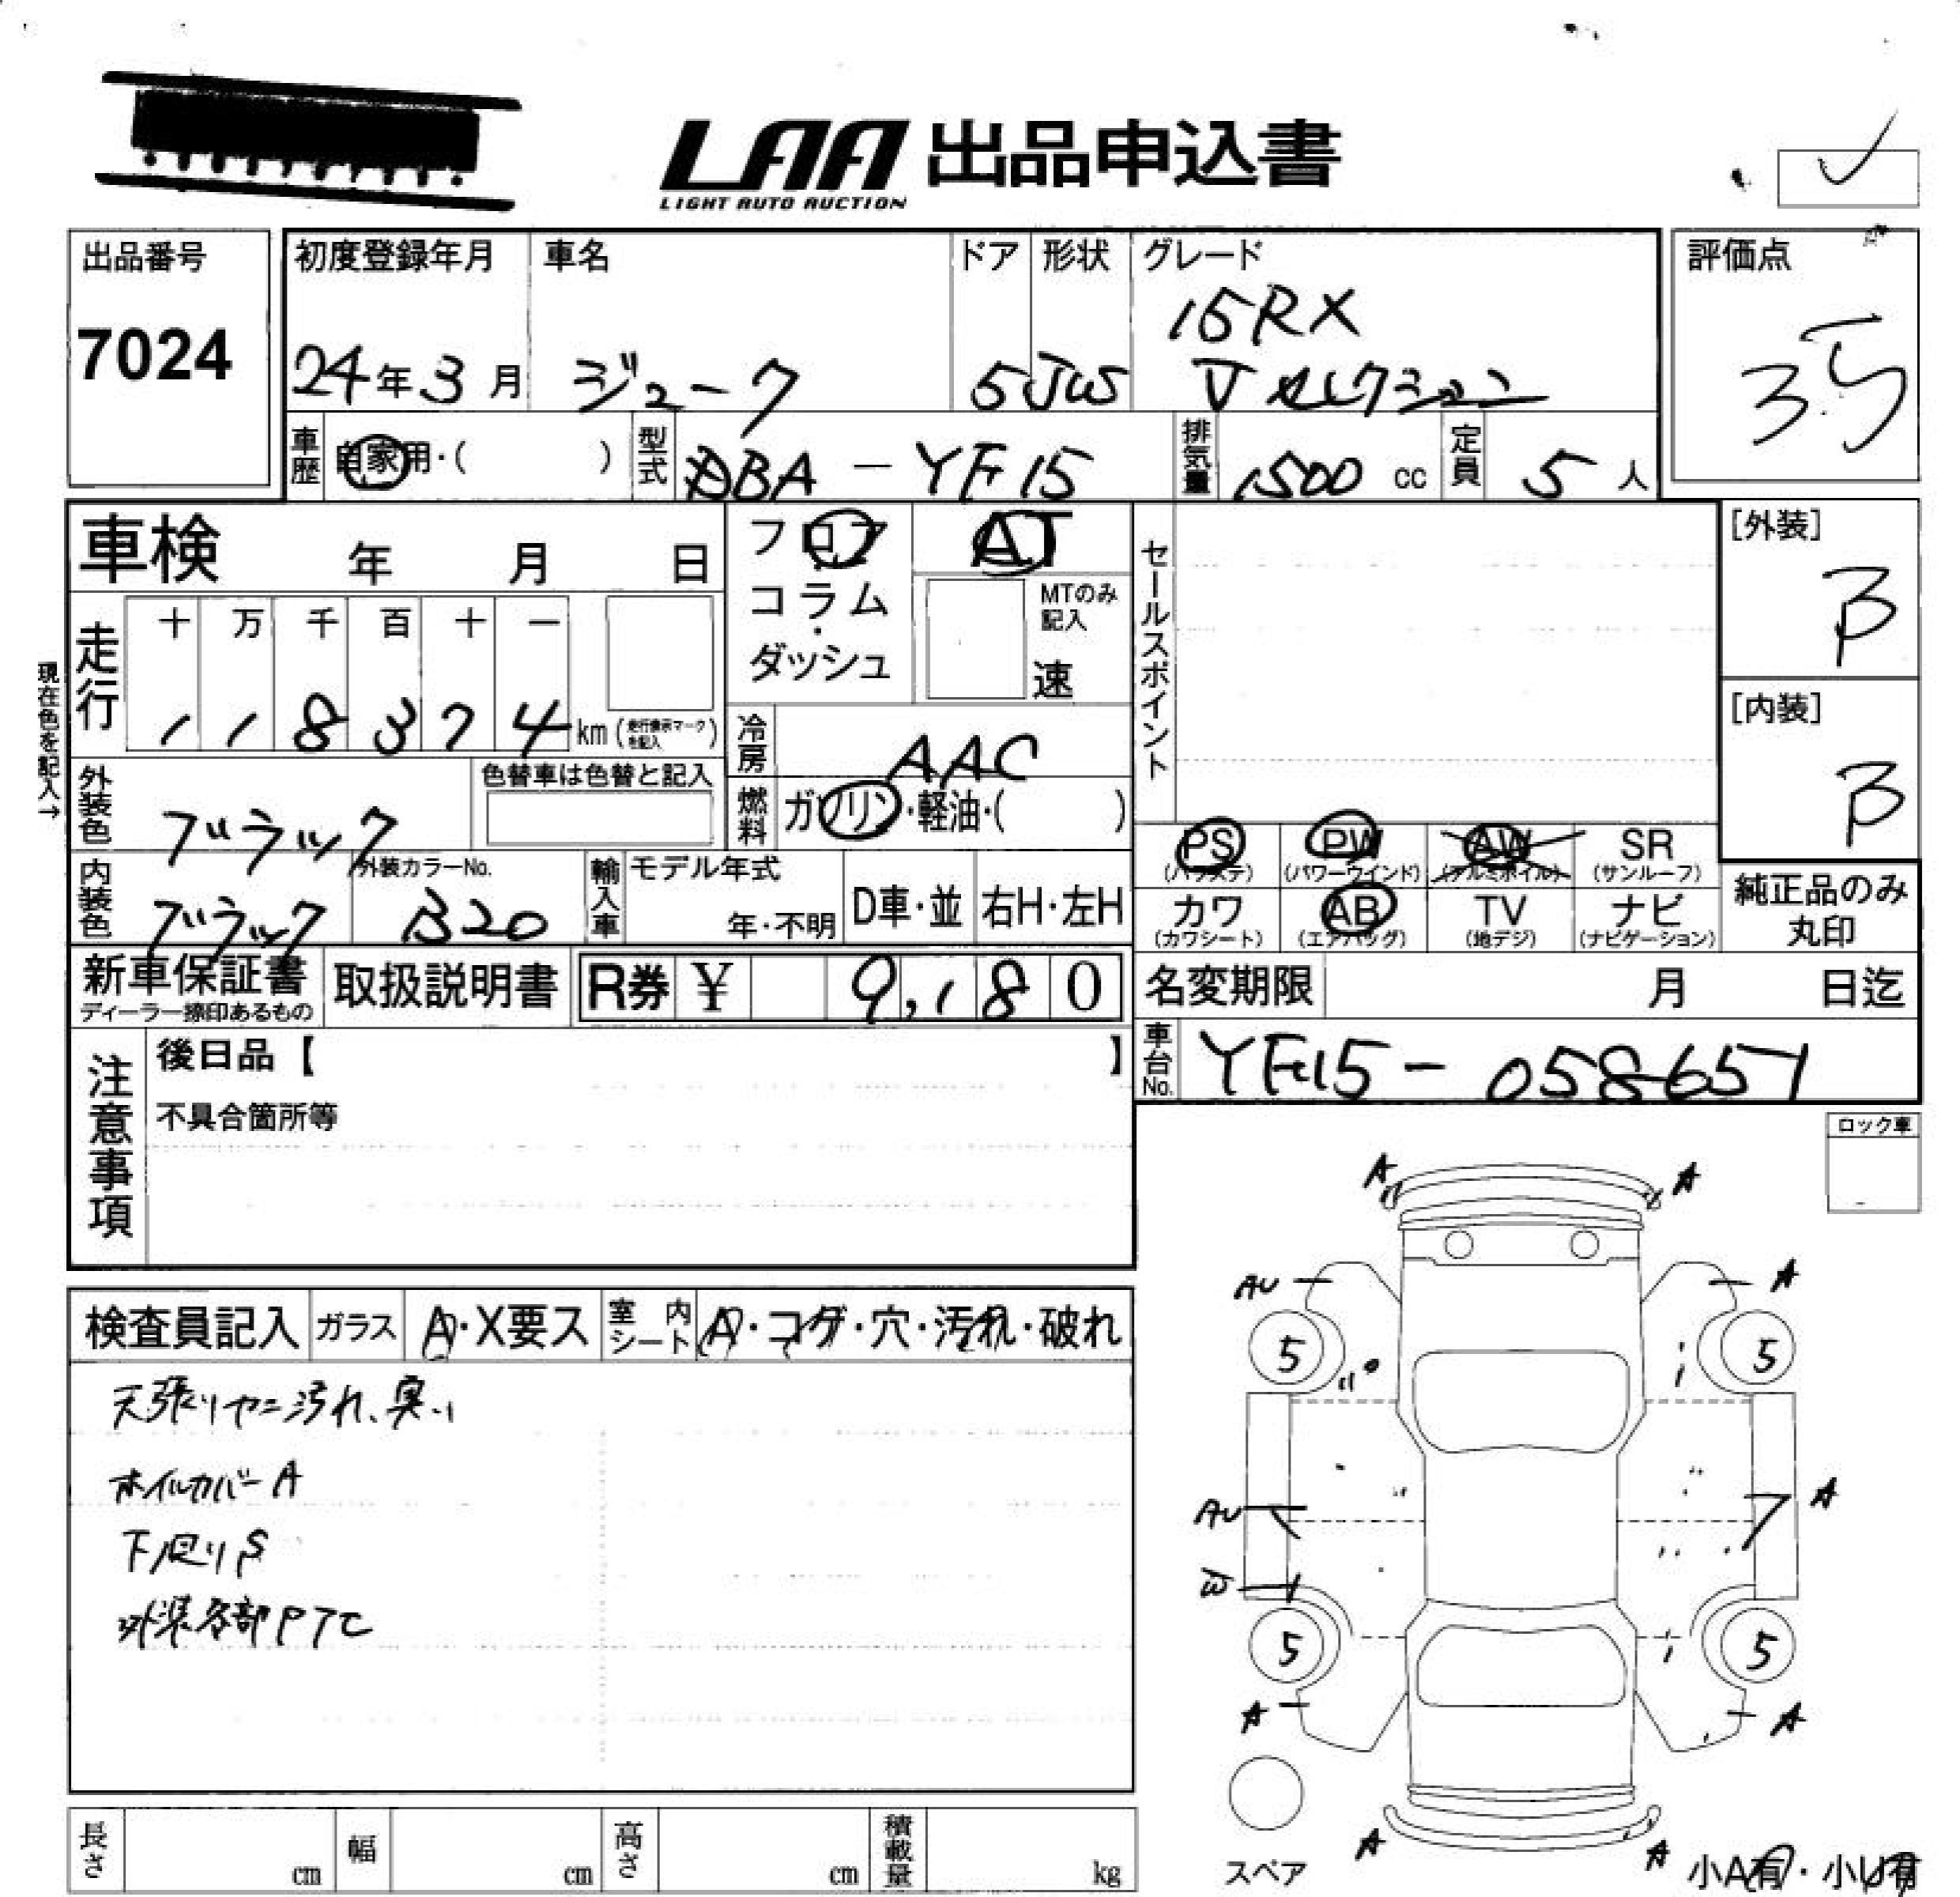 LAA 出品申込書
LIGHT AUTO AUCTION
出品番号
7024
初度登録年月
24年3月
車名
ジューク
ドア
5
形状
JWS
グレード
15RX
Vセレクション
評価点
3.5
車歴
自家用・( )
型式
DBA-YF15
排気量
1500 cc
定員
5 人
車検 年 月 日
フロア
・
コラム
・
ダッシュ
AT
MTのみ
記入
速
セールスポイント
[外装]
B
[内装]
B
現在色を記入→
走行
十 万 千 百 十 一
1 1 8 3 7 4 km(走行表示マークを記入)
冷房
AAC
燃料
ガソリン・軽油・( )
外装色
ブラック
色替車は色替と記入
内装色
ブラック
外装カラーNo.
B20
輸入車
モデル年式
年・不明
D車・並
右H・左H
PS
(パワステ)
PW
(パワーウインド)
AW
(アルミホイル)
SR
(サンルーフ)
カワ
(カワシート)
AB
(エアバッグ)
TV
(地デジ)
ナビ
(ナビゲーション)
純正品のみ
丸印
新車保証書
ディーラー捺印あるもの
取扱説明書
R券 ¥ 9,180
名変期限 月 日迄
車台No.
YF15-058657
注意事項
後日品【 】
不具合箇所等
ロック車
検査員記入
ガラス
A・X要ス
室内シート
A・コゲ・穴・汚れ・破れ
天張りヤニ汚れ、臭い
ホイルカバーA
下廻りS
外装各部PTC
A A
AU A
5 5
AU A
W
5 5
A A
A A
スペア
小A有・小U有
長さ cm
幅 cm
高さ cm
積載量 kg